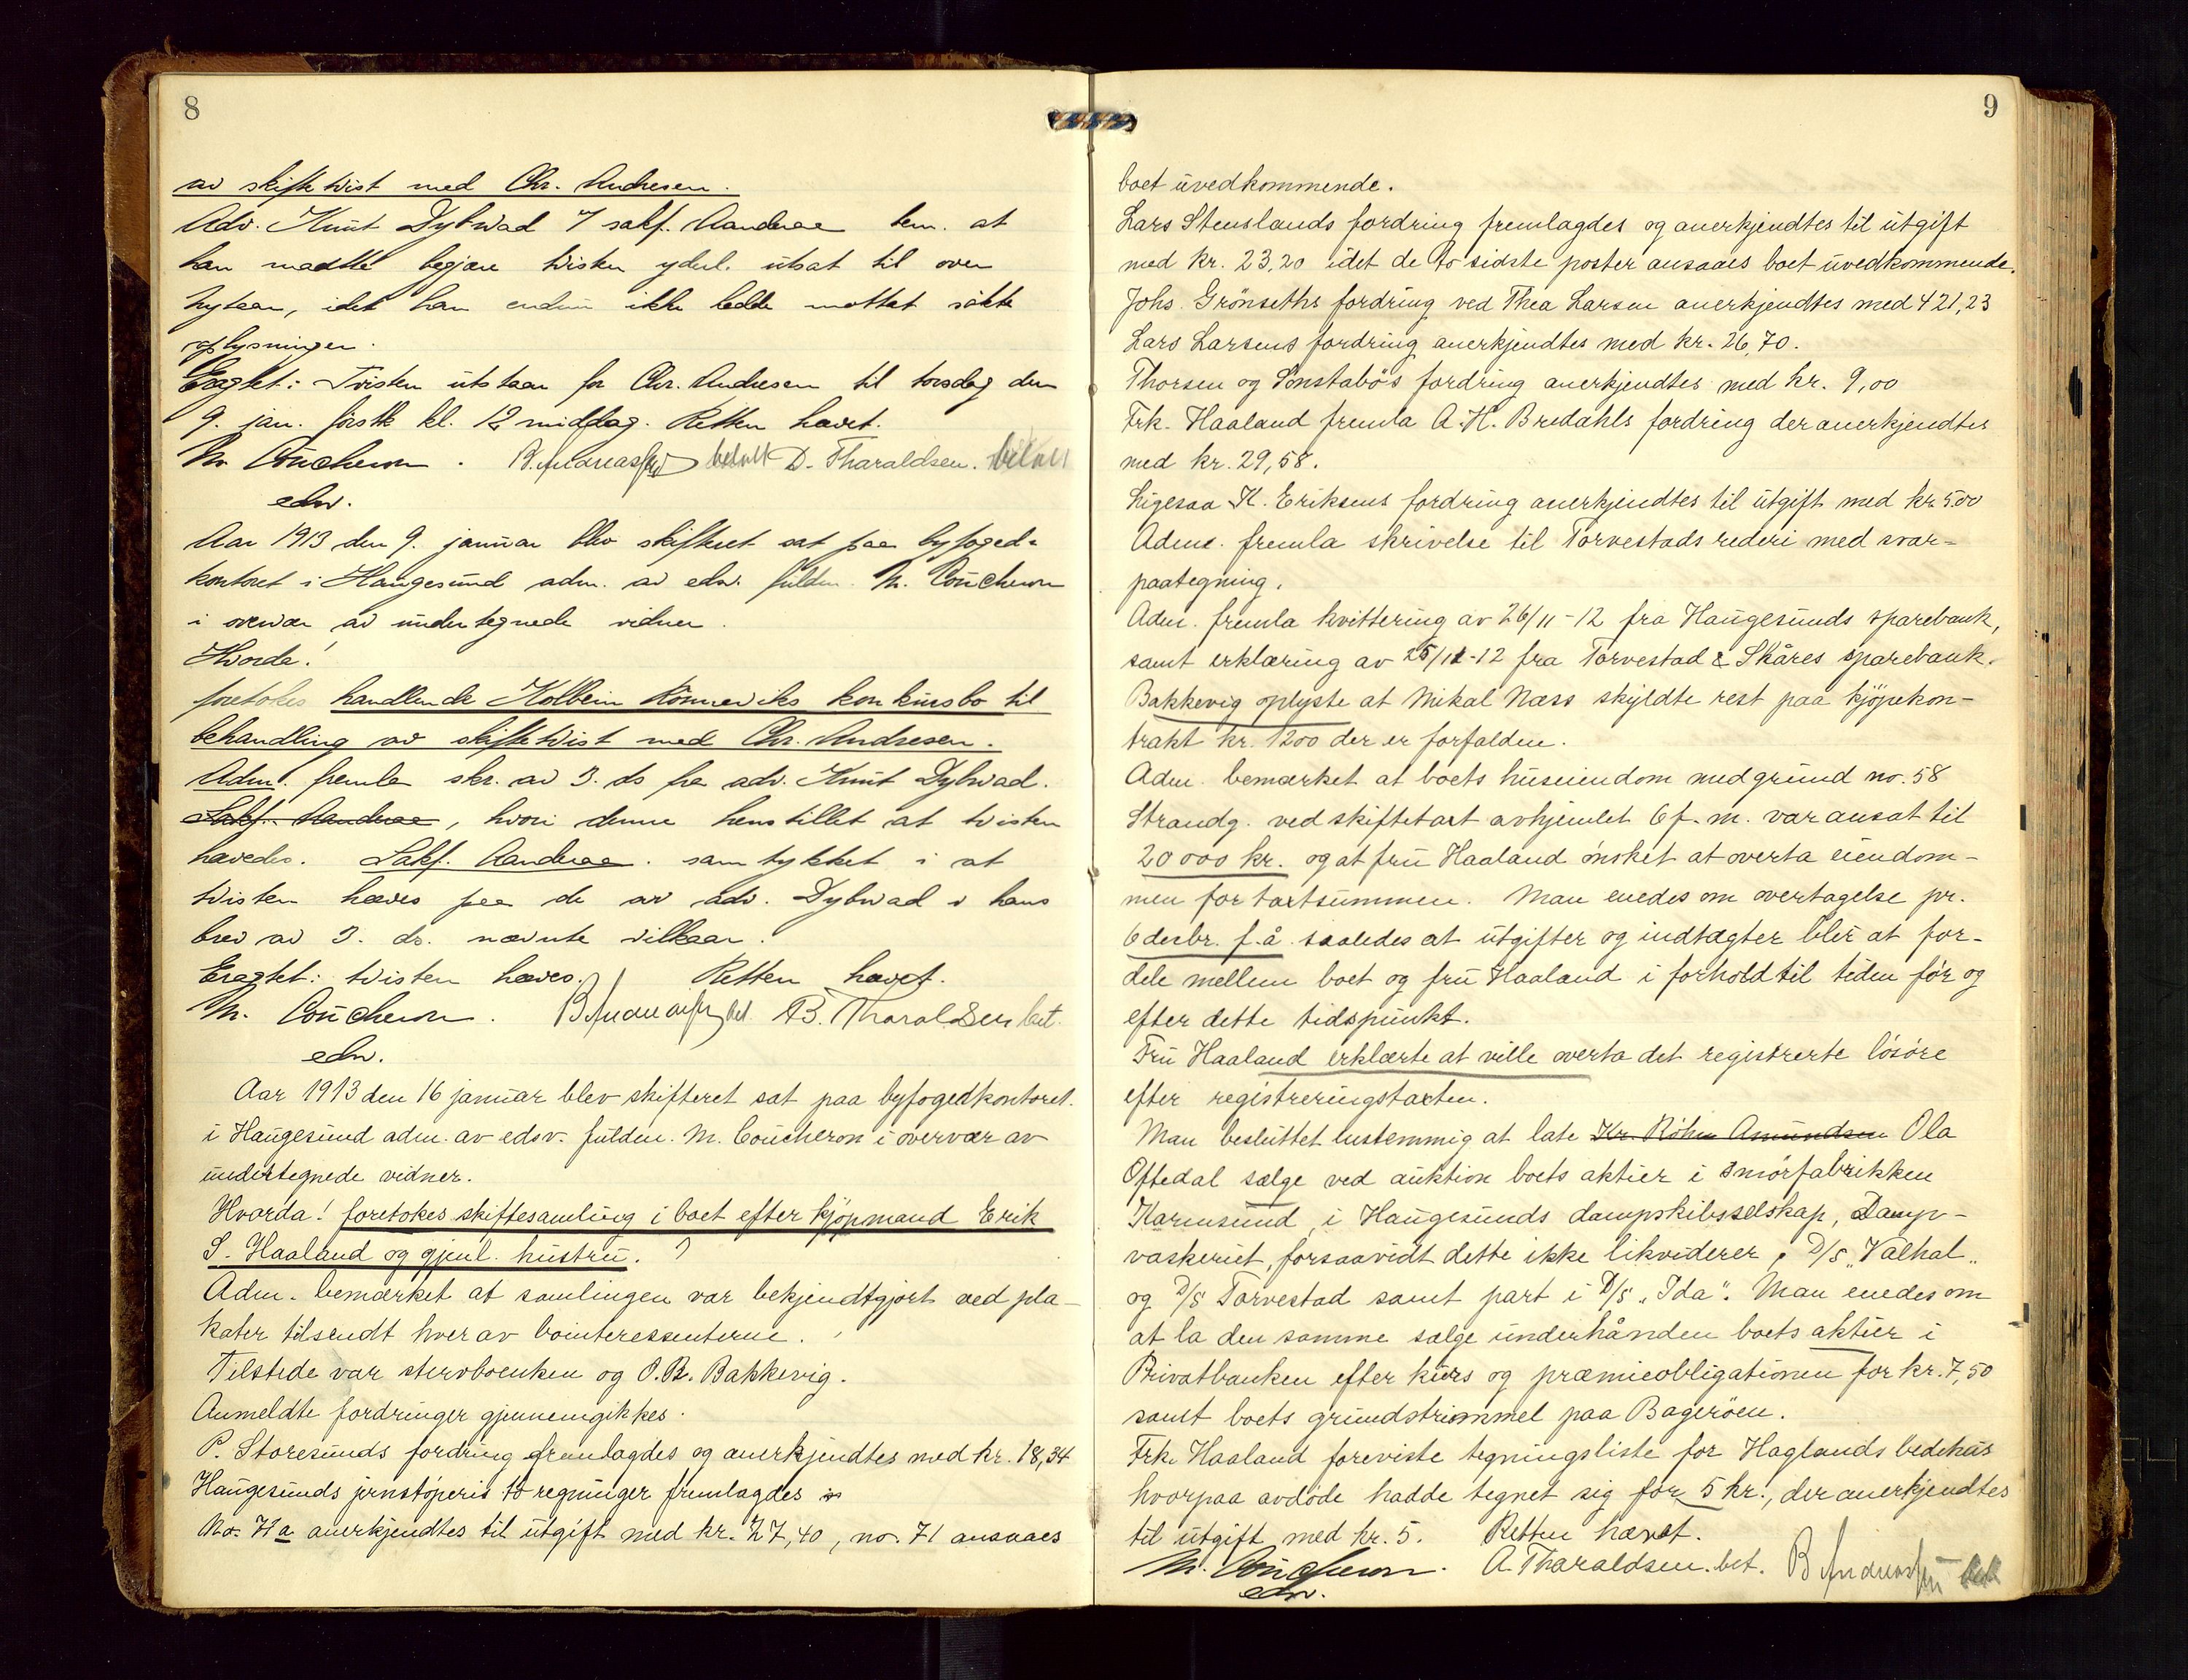 8
av skiftetvist med Chr. Andresen.
Adv. Knut Dybwad v/ sakf. Aanderaa bem. at
han maatte begjære tvisten yderl. utsat til over
nytaar, idet han endnu ikke hadde mottat søkte
oplysninger.
Eragtet: Tvisten utstaar for Chr. Andresen til torsdag den
9. jan. förstk kl. 12 middag. Retten hævet.
M. Coucheron. B. Andreassen betalt D. Tharaldsen. betalt
edsv.
Aar 1913 den 9. januar blev skifteret sat paa byfoged-
kontoret i Haugesund adm. av edsv. fuldm. M. Coucheron
i overvær av undertegnede vidner.
Hvorda!
foretokes handlende Kolbein Rönneviks konkursbo til
behandling av skiftetvist med Chr. Andresen.
Adm. fremla skr. av 3. ds fra adv. Knut Dybwad.
Sakf. Aanderaa, hvori denne henstillet at tvisten
hævedes. Sakf. Aanderaa. samtykket i at
tvisten hæves paa de av adv. Dybwad i hans
brev av 3. ds. nævnte vilkaar.
Eragtet: tvisten hæves. Retten hævet.
M. Coucheron. B. Andreassen bet B. Tharaldsen bet.
edsv.
Aar 1913 den 16 januar blev skifteret sat paa byfogedkontoret.
i Haugesund adm. av edsv. fuldm. M. Coucheron i overvær av
undertegnede vidner.
Hvorda! foretokes skiftesamling i boet efter kjöpmand Erik
S. Haaland og gjenl. hustru.
Adm. bemærket at samlingen var bekjendtgjort ved pla-
kater tilsendt hver av bointeressenterne.
Tilstede var stervboenken og O. B. Bakkevig.
Anmeldte fordringer gjennemgikkes.
P. Storesunds fordring fremlagdes og anerkjendtes med kr. 18,34
Haugesunds jernstöperis to regninger fremlagdes
No. 71a anerkjendtes til utgift med kr. 27,40, no. 71 ansaaes
9
boet uvedkommende.
Lars Stenslands fordring fremlagdes og anerkjendtes til utgift
med kr. 23,20 idet de to sidste poster ansaaes boet uvedkommende.
Johs. Grönseths fordring ved Thea Larsen anerkjendtes med 421,23
Lars Larsens fordring anerkjendtes med kr. 26,70.
Thorsen og Sönstabös fordring anerkjendtes med kr. 9,00
Frk. Haaland fremla A. H. Bredahls fordring der anerkjendtes
med kr. 29,58.
Ligesaa K. Eriksens fordring anerkjendtes til utgift med kr. 5.00
Adm. fremla skrivelse til Torvestads rederi med svar-
paategning.
Adm. fremla kvittering av 26/11-12 fra Haugesunds sparebank,
samt erklæring av 25/11-12 fra Torvestad & Skåres sparebank.
Bakkevig oplyste at Mikal Næss skyldte rest paa kjöpekon-
trakt kr. 1200 der er forfalden.
Adm. bemærket at boets huseiendom med grund no. 58
Strandg. ved skiftetaxt avhjemlet 6 f. m. var ansat til
20000 kr. og at fru Haaland ønsket at overta eiendom-
men for taxtsummen. Man enedes om overtagelse pr.
6 desbr. f.å. saaledes at utgifter og indtægter blir at for-
dele mellem boet og fru Haaland i forhold til tiden før og
efter dette tidspunkt.
Fru Haaland erklærte at ville overta det registrerte lösöre
efter registreringstaxten.
Man besluttet enstemmig at late Kr. Röhne Amundsen Ola
Oftedal sælge ved auktion boets aktier i Smörfabrikken
Karmsund, i Haugesunds dampskibsselskap, Damp-
vaskeriet, forsaavidt dette ikke likviderer, D/S „Valhal„
og D/S Torvestad samt part i D/S „Ida". Man enedes om
at la den samme sælge underhånden boets aktier i
Privatbanken efter kurs og præmieobligationen for kr. 7,50
samt boets grundstrimmel paa Bagerøen.
Frk. Haaland foreviste tegningsliste for Haglands bedehus
hvorpaa avdöde hadde tegnet sig for 5 kr., der anerkjendtes
til utgift med kr. 5. Retten hævet.
M. Coucheron. A. Tharaldsen. bet. B Andreassen bet
edsv.